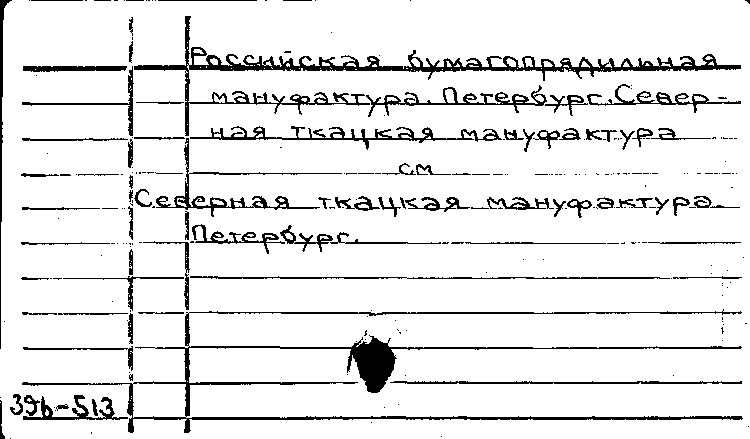 Российская бумагопрядильная
мануфактура. Петербург. Север-
ная ткацкая мануфактура
см
Северная ткацкая мануфактура.
Петербург.
39б-513